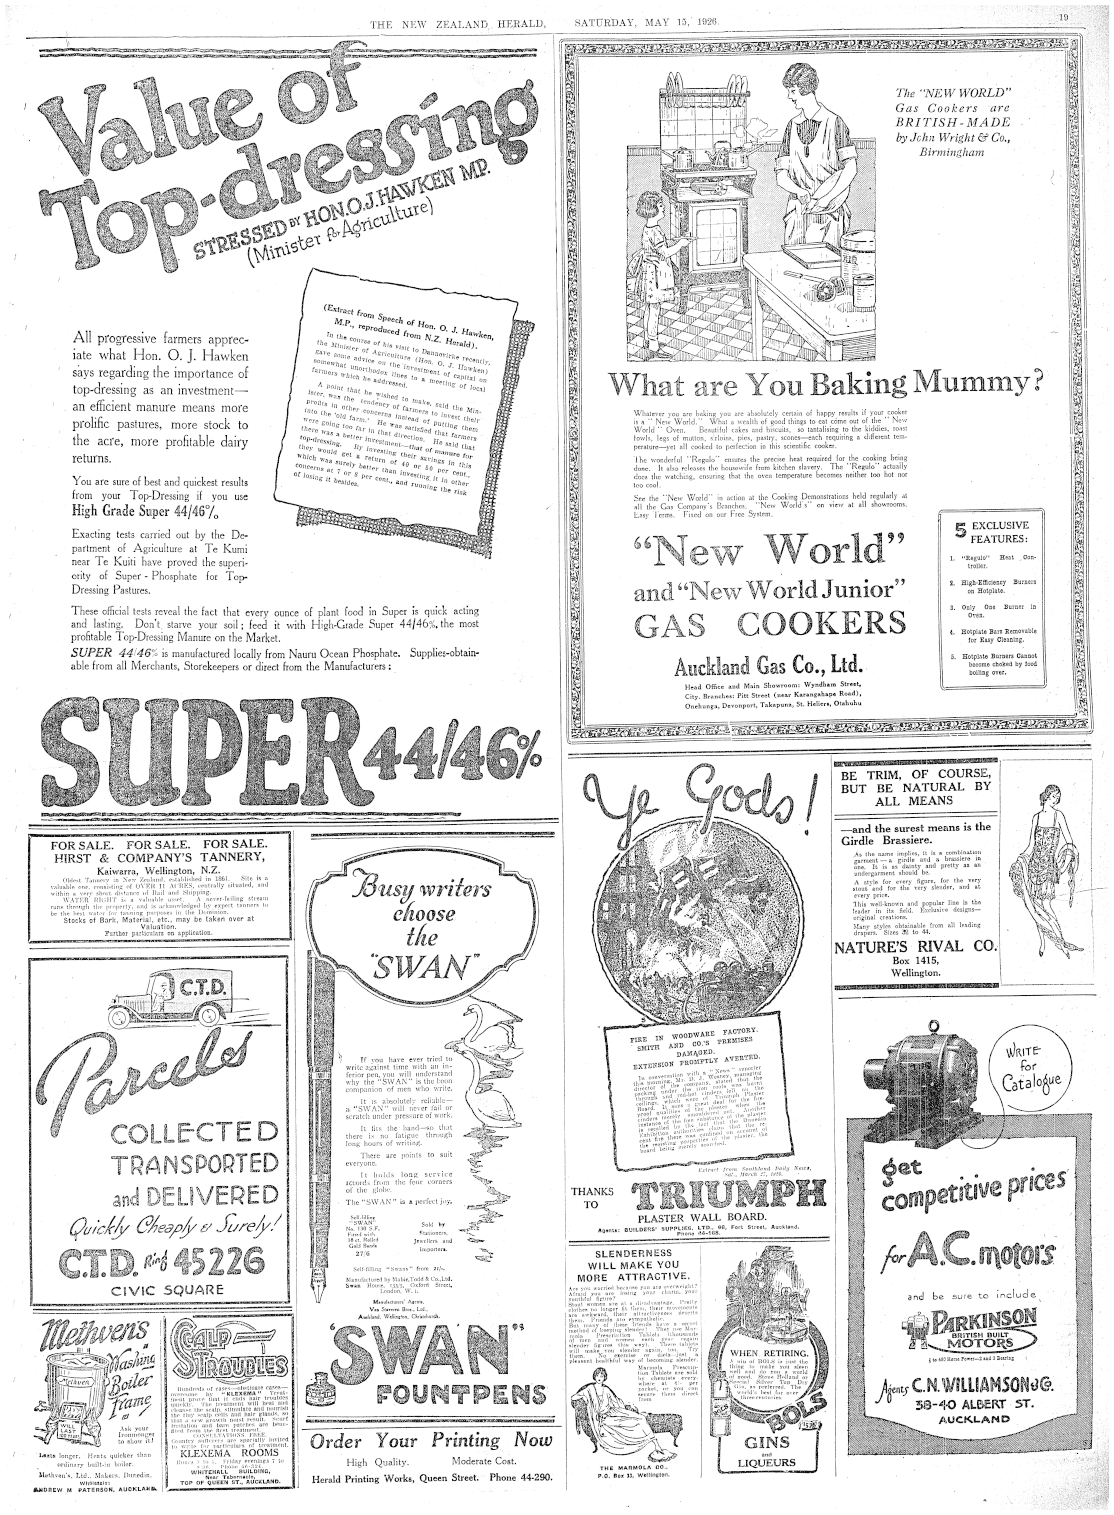 THE NEW ZEALAND HERALD, SATURDAY, MAY 15, 1926.
19
Value of
Top-dressing
STRESSED BY HON. O. J. HAWKEN MP.
(Minister for Agriculture)
(Extract from Speech of Hon. O. J. Hawken,
M.P., reproduced from N.Z. Herald).
In the course of his visit to Dannevirke recently,
the Minister of Agriculture (Hon. O. J. Hawken)
gave some advice on the investment of capital on
somewhat unorthodox lines to a meeting of local
farmers which he addressed.
A point that he wished to make, said the Min-
ister, was the tendency of farmers to invest their
profits in other concerns instead of putting them
into the 'old farm.' He was satisfied that farmers
were going too far in that direction. He said that
there was a better investment—that of manure for
top-dressing. By investing their savings in this
they would get a return of 40 or 50 per cent.,
which was surely better than investing it in other
concerns at 7 or 8 per cent., and running the risk
of losing it besides.
All progressive farmers apprec-
iate what Hon. O. J. Hawken
says regarding the importance of
top-dressing as an investment—
an efficient manure means more
prolific pastures, more stock to
the acre, more profitable dairy
returns.
You are sure of best and quickest results
from your Top-Dressing if you use
High Grade Super 44/46%
Exacting tests carried out by the De-
partment of Agriculture at Te Kumi
near Te Kuiti have proved the superi-
ority of Super-Phosphate for Top-
Dressing Pastures.
These official tests reveal the fact that every ounce of plant food in Super is quick acting
and lasting. Don't starve your soil; feed it with High-Grade Super 44/46%, the most
profitable Top-Dressing Manure on the Market.
SUPER 44/46% is manufactured locally from Nauru Ocean Phosphate. Supplies-obtain-
able from all Merchants, Storekeepers or direct from the Manufacturers:
SUPER 44/46%
The "NEW WORLD"
Gas Cookers are
BRITISH-MADE
by John Wright & Co.,
Birmingham
What are You Baking Mummy?
Whatever you are baking you are absolutely certain of happy results if your cooker
is a "New World." What a wealth of good things to eat come out of the "New
World" Oven. Beautiful cakes and biscuits, so tantalising to the kiddies, roast
fowls, legs of mutton, sirloins, pies, pastry, scones—each requiring a different tem-
perature—yet all cooked to perfection in this scientific cooker.
The wonderful "Regulo" ensures the precise heat required for the cooking being
done. It also releases the housewife from kitchen slavery. The "Regulo" actually
does the watching, ensuring that the oven temperature becomes neither too hot nor
too cool.
See the "New World" in action at the Cooking Demonstrations held regularly at
all the Gas Company's Branches. "New World's" on view at all showrooms.
Easy Terms. Fixed on our Free System.
"New World"
and "New World Junior"
GAS COOKERS
Auckland Gas Co., Ltd.
Head Office and Main Showroom: Wyndham Street,
City. Branches: Pitt Street (near Karangahape Road),
Onehunga, Devonport, Takapuna, St. Heliers, Otahuhu
5 EXCLUSIVE
FEATURES:
1. "Regulo" Heat Con-
troller.
2. High-Efficiency Burners
on Hotplate.
3. Only One Burner in
Oven.
4. Hotplate Bars Removable
for Easy Cleaning.
5. Hotplate Burners Cannot
become choked by food
boiling over.
FOR SALE. FOR SALE. FOR SALE.
HIRST & COMPANY'S TANNERY,
Kaiwarra, Wellington, N.Z.
Oldest Tannery in New Zealand, established in 1861. Site is a
valuable one, consisting of OVER 11 ACRES, centrally situated, and
within a very short distance of Rail and Shipping.
WATER RIGHT is a valuable asset. A never-failing stream
runs through the property, and is acknowledged by expert tanners to
be the best water for tanning purposes in the Dominion.
Stocks of Bark, Material, etc., may be taken over at
Valuation.
Further particulars on application.
C.T.D.
Parcels
COLLECTED
TRANSPORTED
and DELIVERED
Quickly Cheaply & Surely!
C.T.D. Ring 45226
CIVIC SQUARE
Methvens
Washing
Boiler
Frame
Ask your
Ironmonger
to show it!
Lasts longer. Heats quicker than
ordinary built-in boiler.
Methven's, Ltd., Makers, Dunedin.
ANDREW M. PATERSON, AUCKLAND.
SCALP
TROUBLES
KLEXEMA ROOMS
WHITEHALL BUILDING,
Near Tabernacle,
TOP OF QUEEN ST., AUCKLAND.
Busy writers
choose
the
"SWAN"
If you have ever tried to
write against time with an in-
ferior pen, you will understand
why the "SWAN" is the boon
companion of men who write.
It is absolutely reliable—
a "SWAN" will never fail or
scratch under pressure of work.
It fits the hand—so that
there is no fatigue through
long hours of writing.
There are points to suit
everyone.
It holds long service
records from the four corners
of the globe.
The "SWAN" is a perfect joy.
Self-filling
"SWAN"
No. 130 S.F.
Fitted with
18 ct. Rolled
Gold Bands
27/6
Sold by
Stationers,
Jewellers and
Importers.
Self-filling "Swans" from 21/-
Manufactured by Mabie, Todd & Co., Ltd.
Swan House, 133/5, Oxford Street,
London, W. 1.
Manufacturers' Agents,
Van Staveren Bros., Ltd.,
Auckland, Wellington, Christchurch.
"SWAN"
FOUNTPENS
Order Your Printing Now
High Quality. Moderate Cost.
Herald Printing Works, Queen Street. Phone 44-290.
Ye Gods!
FIRE IN WOODWARE FACTORY.
SMITH AND CO.'S PREMISES
DAMAGED.
EXTENSION PROMPTLY AVERTED.
Extract from Southland Daily News,
THANKS
TO
TRIUMPH
PLASTER WALL BOARD.
Agents: BUILDERS' SUPPLIES, LTD., 96, Fort Street, Auckland.
SLENDERNESS
WILL MAKE YOU
MORE ATTRACTIVE.
Are you worried because you are overweight?
Afraid you are losing your charm, your
youthful figure?
THE MARMOLA CO.,
P.O. Box 11, Wellington.
WHEN RETIRING.
BOLS
GINS
and
LIQUEURS
BE TRIM, OF COURSE,
BUT BE NATURAL BY
ALL MEANS
—and the surest means is the
Girdle Brassiere.
As the name implies, it is a combination
garment—a girdle and a brassiere in
one. It is as dainty and pretty as an
undergarment should be.
A style for every figure, for the very
stout and for the very slender, and at
every price.
This well-known and popular line is the
leader in its field. Exclusive designs—
original creations.
Many styles obtainable from all leading
drapers. Sizes 32 to 44.
NATURE'S RIVAL CO.
Box 1415,
Wellington.
WRITE
for
Catalogue
get
competitive prices
for A.C. motors
and be sure to include
PARKINSON
BRITISH BUILT
MOTORS
Agents C.N. WILLIAMSON & Co.
38-40 ALBERT ST.
AUCKLAND